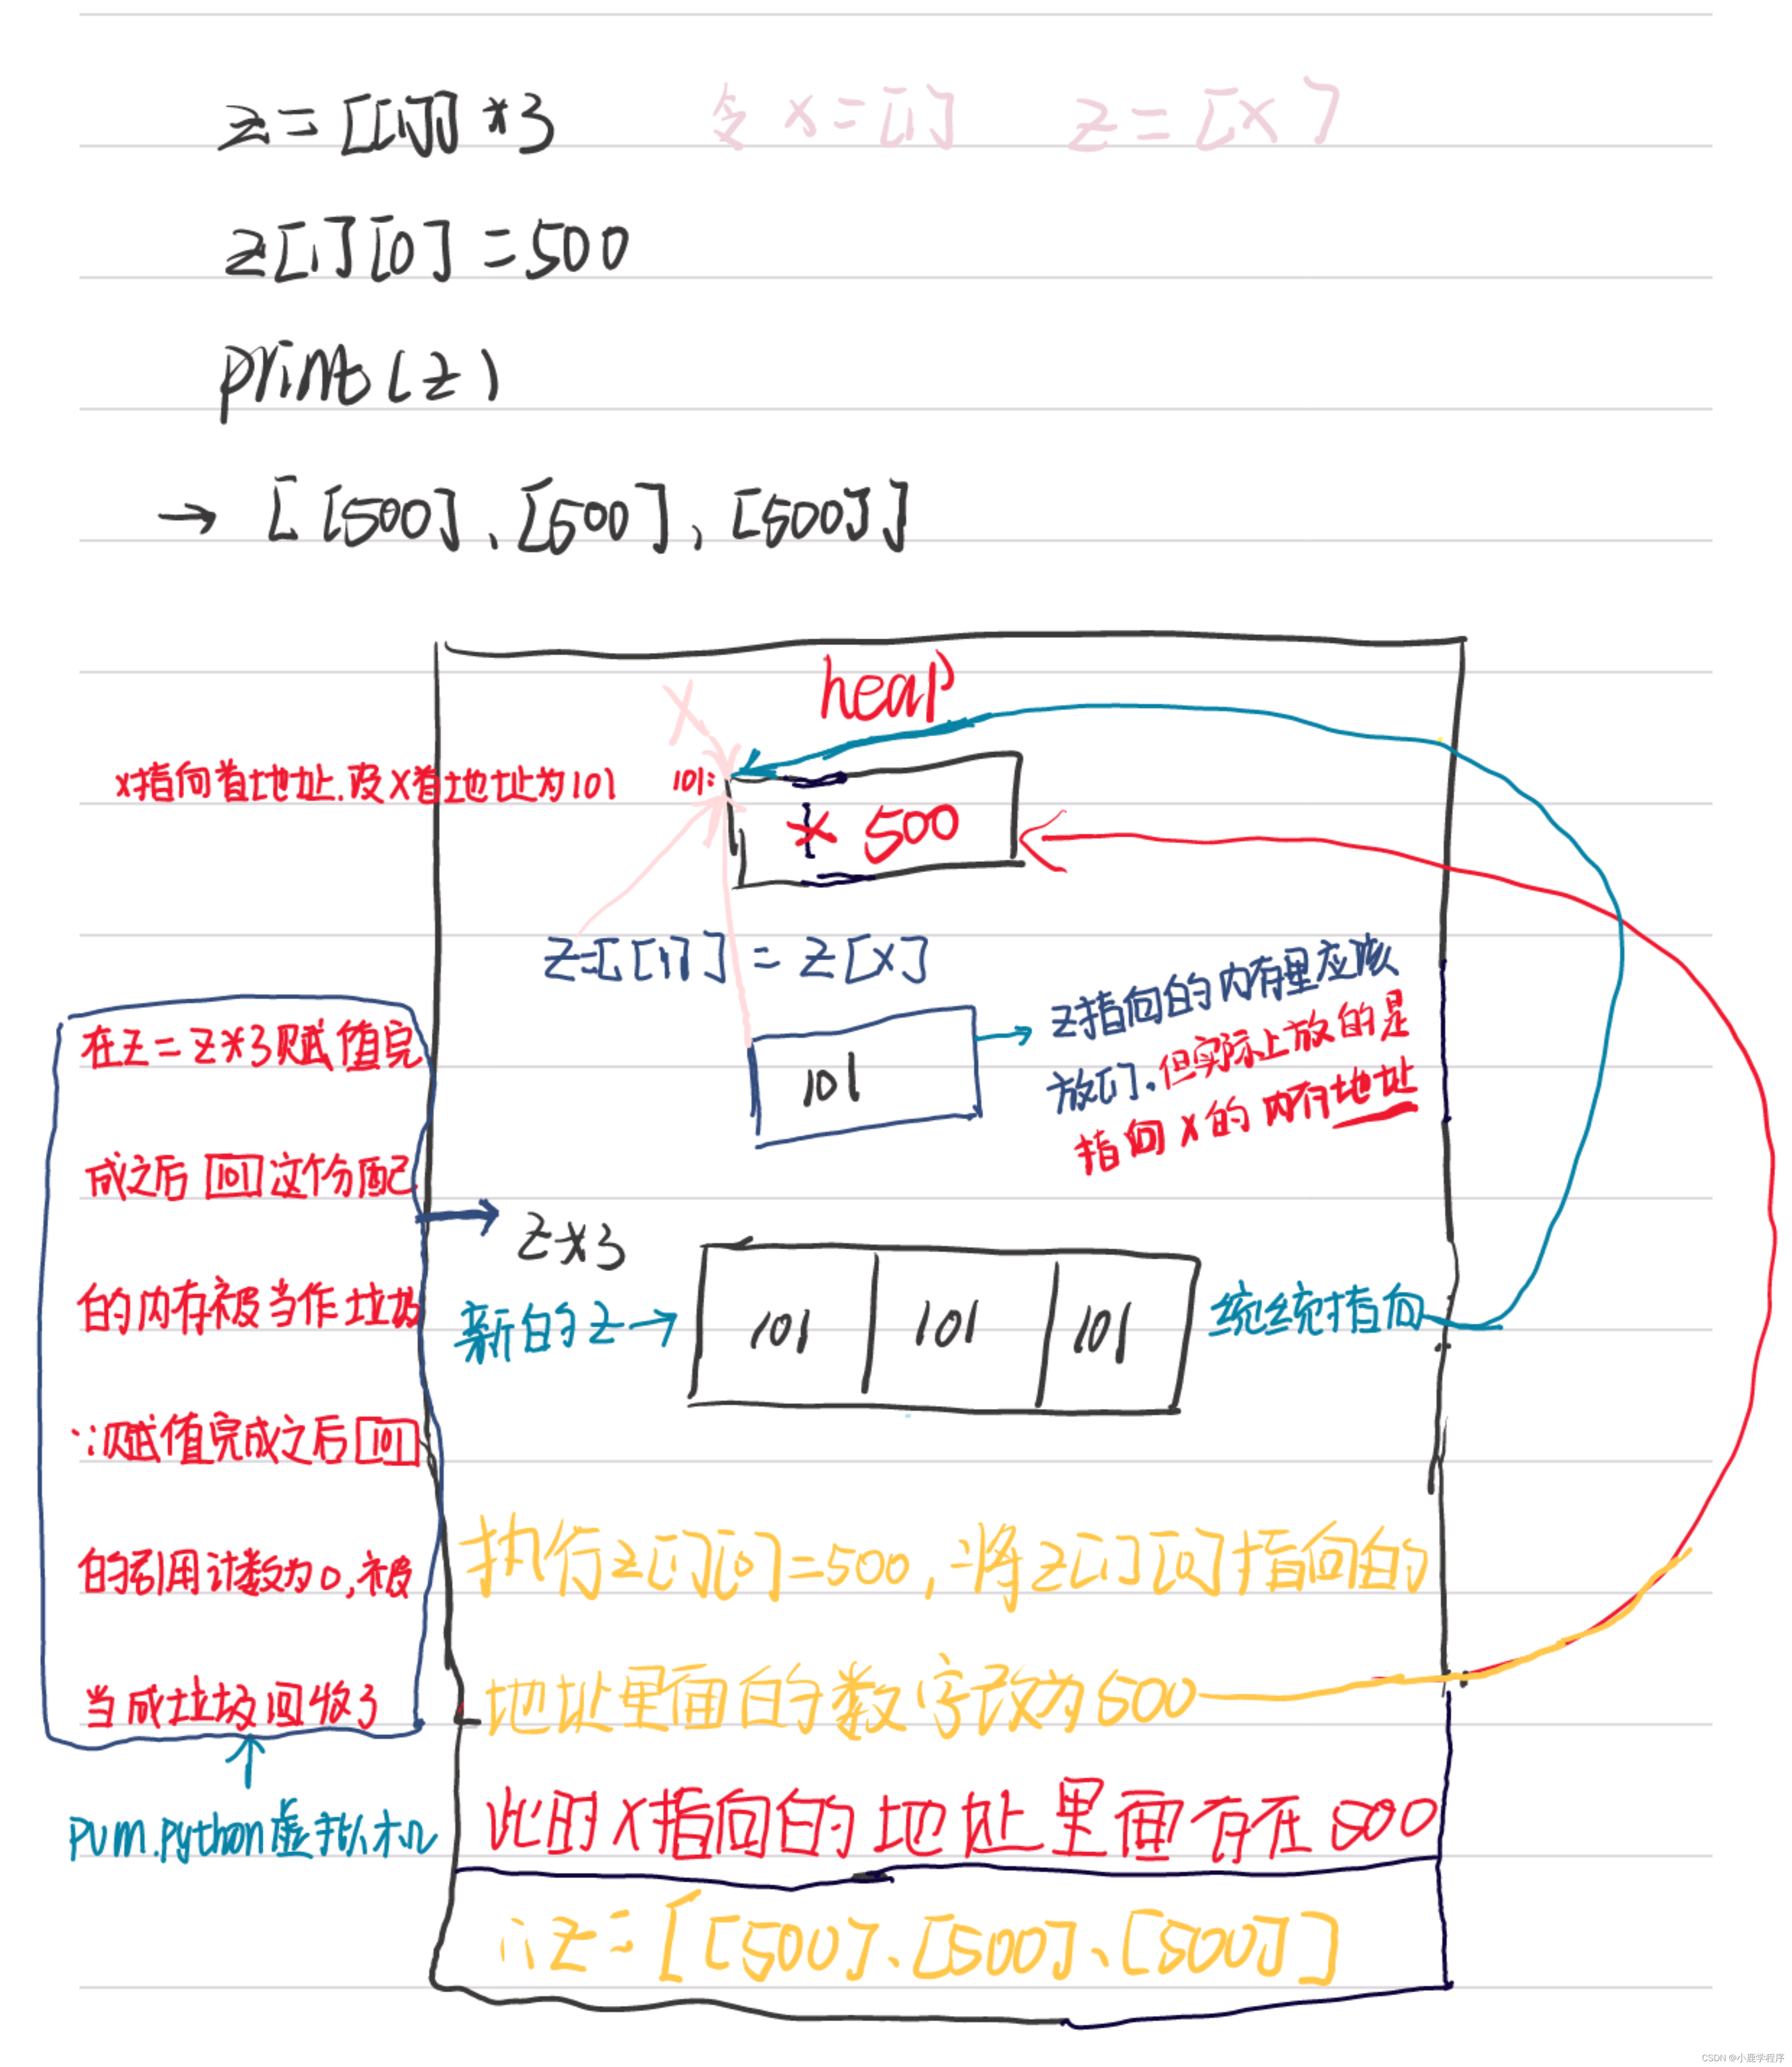 z=[[1]]*3 令x=[1] z=[x]
z[1][0]=500
print(z)
→ [[500]、[500],[500]]
heap
x
x指向首地址.设x首地址为101
101:
1 500
z=[[1]] = z[x]
101
z指向的内存里应该
放[1].但实际上放的是
指向x的内存地址
在z=z*3赋值完
成之后 101 这个分配
的内存被当作垃圾
∵赋值完成之后 101
的引用计数为0,被
当成垃圾回收了
pvm.python虚拟机
z*3
新的z→
101 101 101
统统指向
执行z[1][0]=500,∴将z[1][0]指向的
地址里面的数字改为500
此时x指向的地址里面存在500
∴z=[[500]、[500]、[500]]
CSDN @小鹿学程序